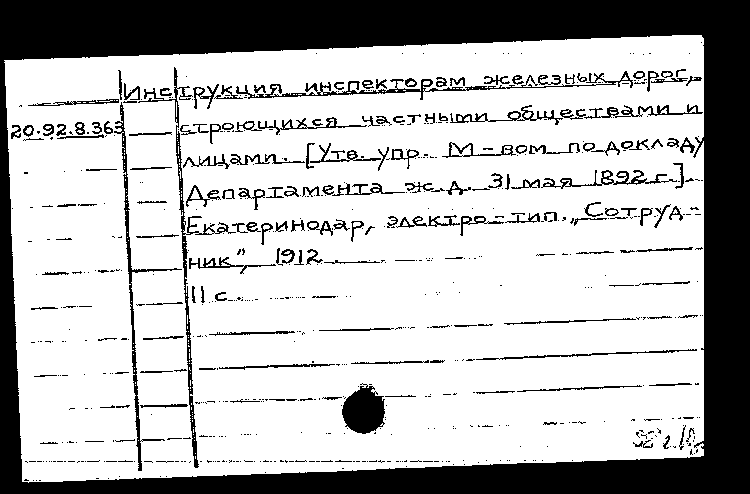 Инструкция инспекторам железных дорог,
20.92.8.363 строющихся частными обществами и
лицами. [Утв. упр. М-вом по докладу
Департамента ж.д. 31 мая 1892 г.].
Екатеринодар, электро-тип. „Сотруд-
ник", 1912.
11 с.